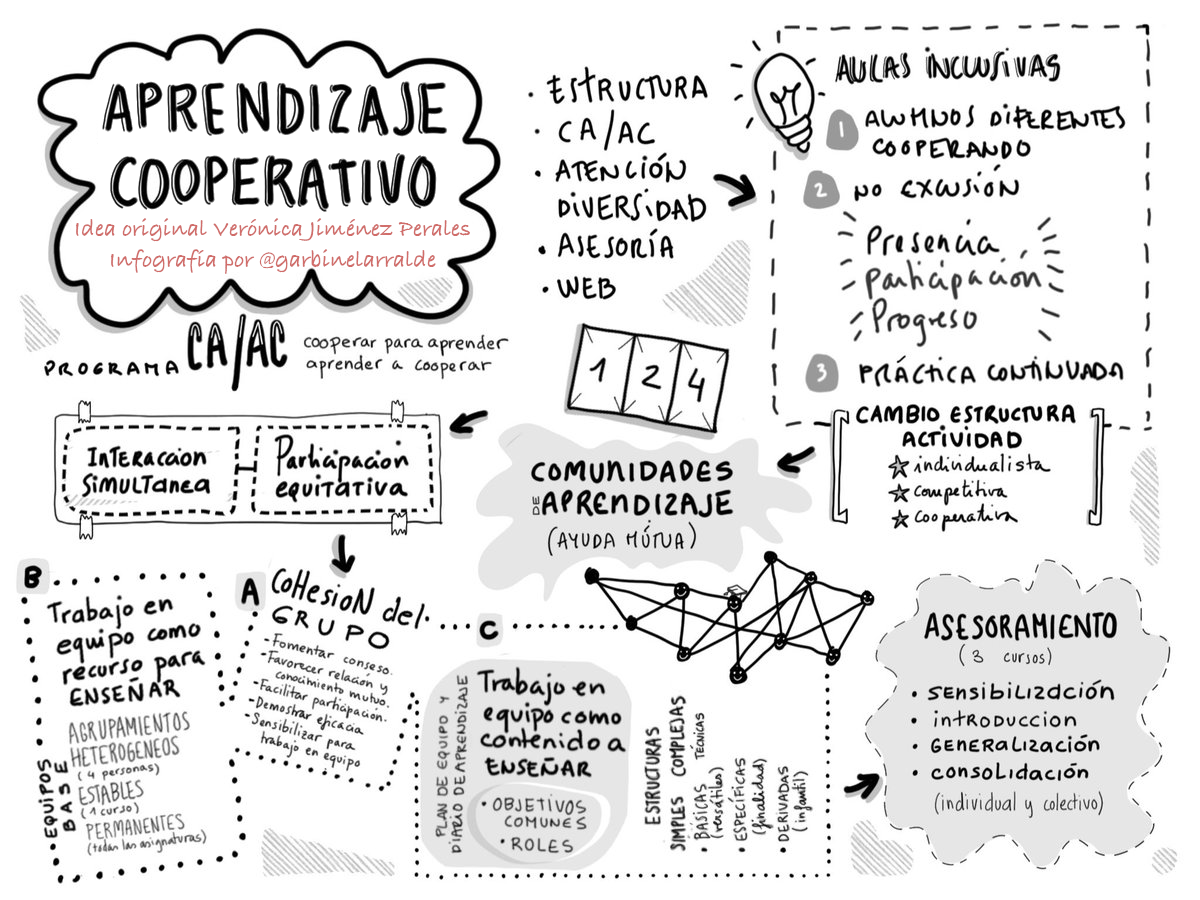 APRENDIZAJE
COOPERATIVO
Idea original Verónica Jiménez Perales
Infografía por @garbinelarralde
• ESTRUCTURA
• CA/AC
• ATENCIÓN
DIVERSIDAD
• ASESORÍA
• WEB
AULAS INCLUSIVAS
1 ALUMNOS DIFERENTES
COOPERANDO
2 NO EXCUSIÓN
Presencia
Participacion
Progreso
3 PRÁCTICA CONTINUADA
PROGRAMA CA/AC
cooperar para aprender
aprender a cooperar
1 2 4
INTERACCION
SIMULTANEA
Participacion
EQUITATIVA
COMUNIDADES
DE APRENDIZAJE
(AYUDA MÚTUA)
CAMBIO ESTRUCTURA
ACTIVIDAD
☆ individualista
☆ competitiva
☆ cooperativa
B
Trabajo en
equipo como
recurso para
ENSEÑAR
EQUIPOS
BASE
AGRUPAMIENTOS
HETEROGENEOS
(4 personas)
ESTABLES
(1 curso)
PERMANENTES
(todan las asignaturas)
A
COHESION del
GRUPO
- Fomentar conseso.
- Favorecer relación y
conocimiento mutuo.
- Facilitar participación.
- Demostrar eficacia
- Sensibilizar para
trabajo en equipo
C
PLAN DE EQUIPO Y
DIARIO DE APRENDIZAJE
Trabajo en
equipo como
contenido a
ENSEÑAR
• OBJETIVOS
COMUNES
• ROLES
ESTRUCTURAS
SIMPLES COMPLEJAS
TÉCNICAS
• BÁSICAS
(versátiles)
• ESPECÍFICAS
(finalidad)
• DERIVADAS
(infantil)
ASESORAMIENTO
(3 cursos)
• SENSIBILIZACIÓN
• INTRODUCCION
• GENERALIZACIÓN
• CONSOLIDACIÓN
(individual y colectivo)